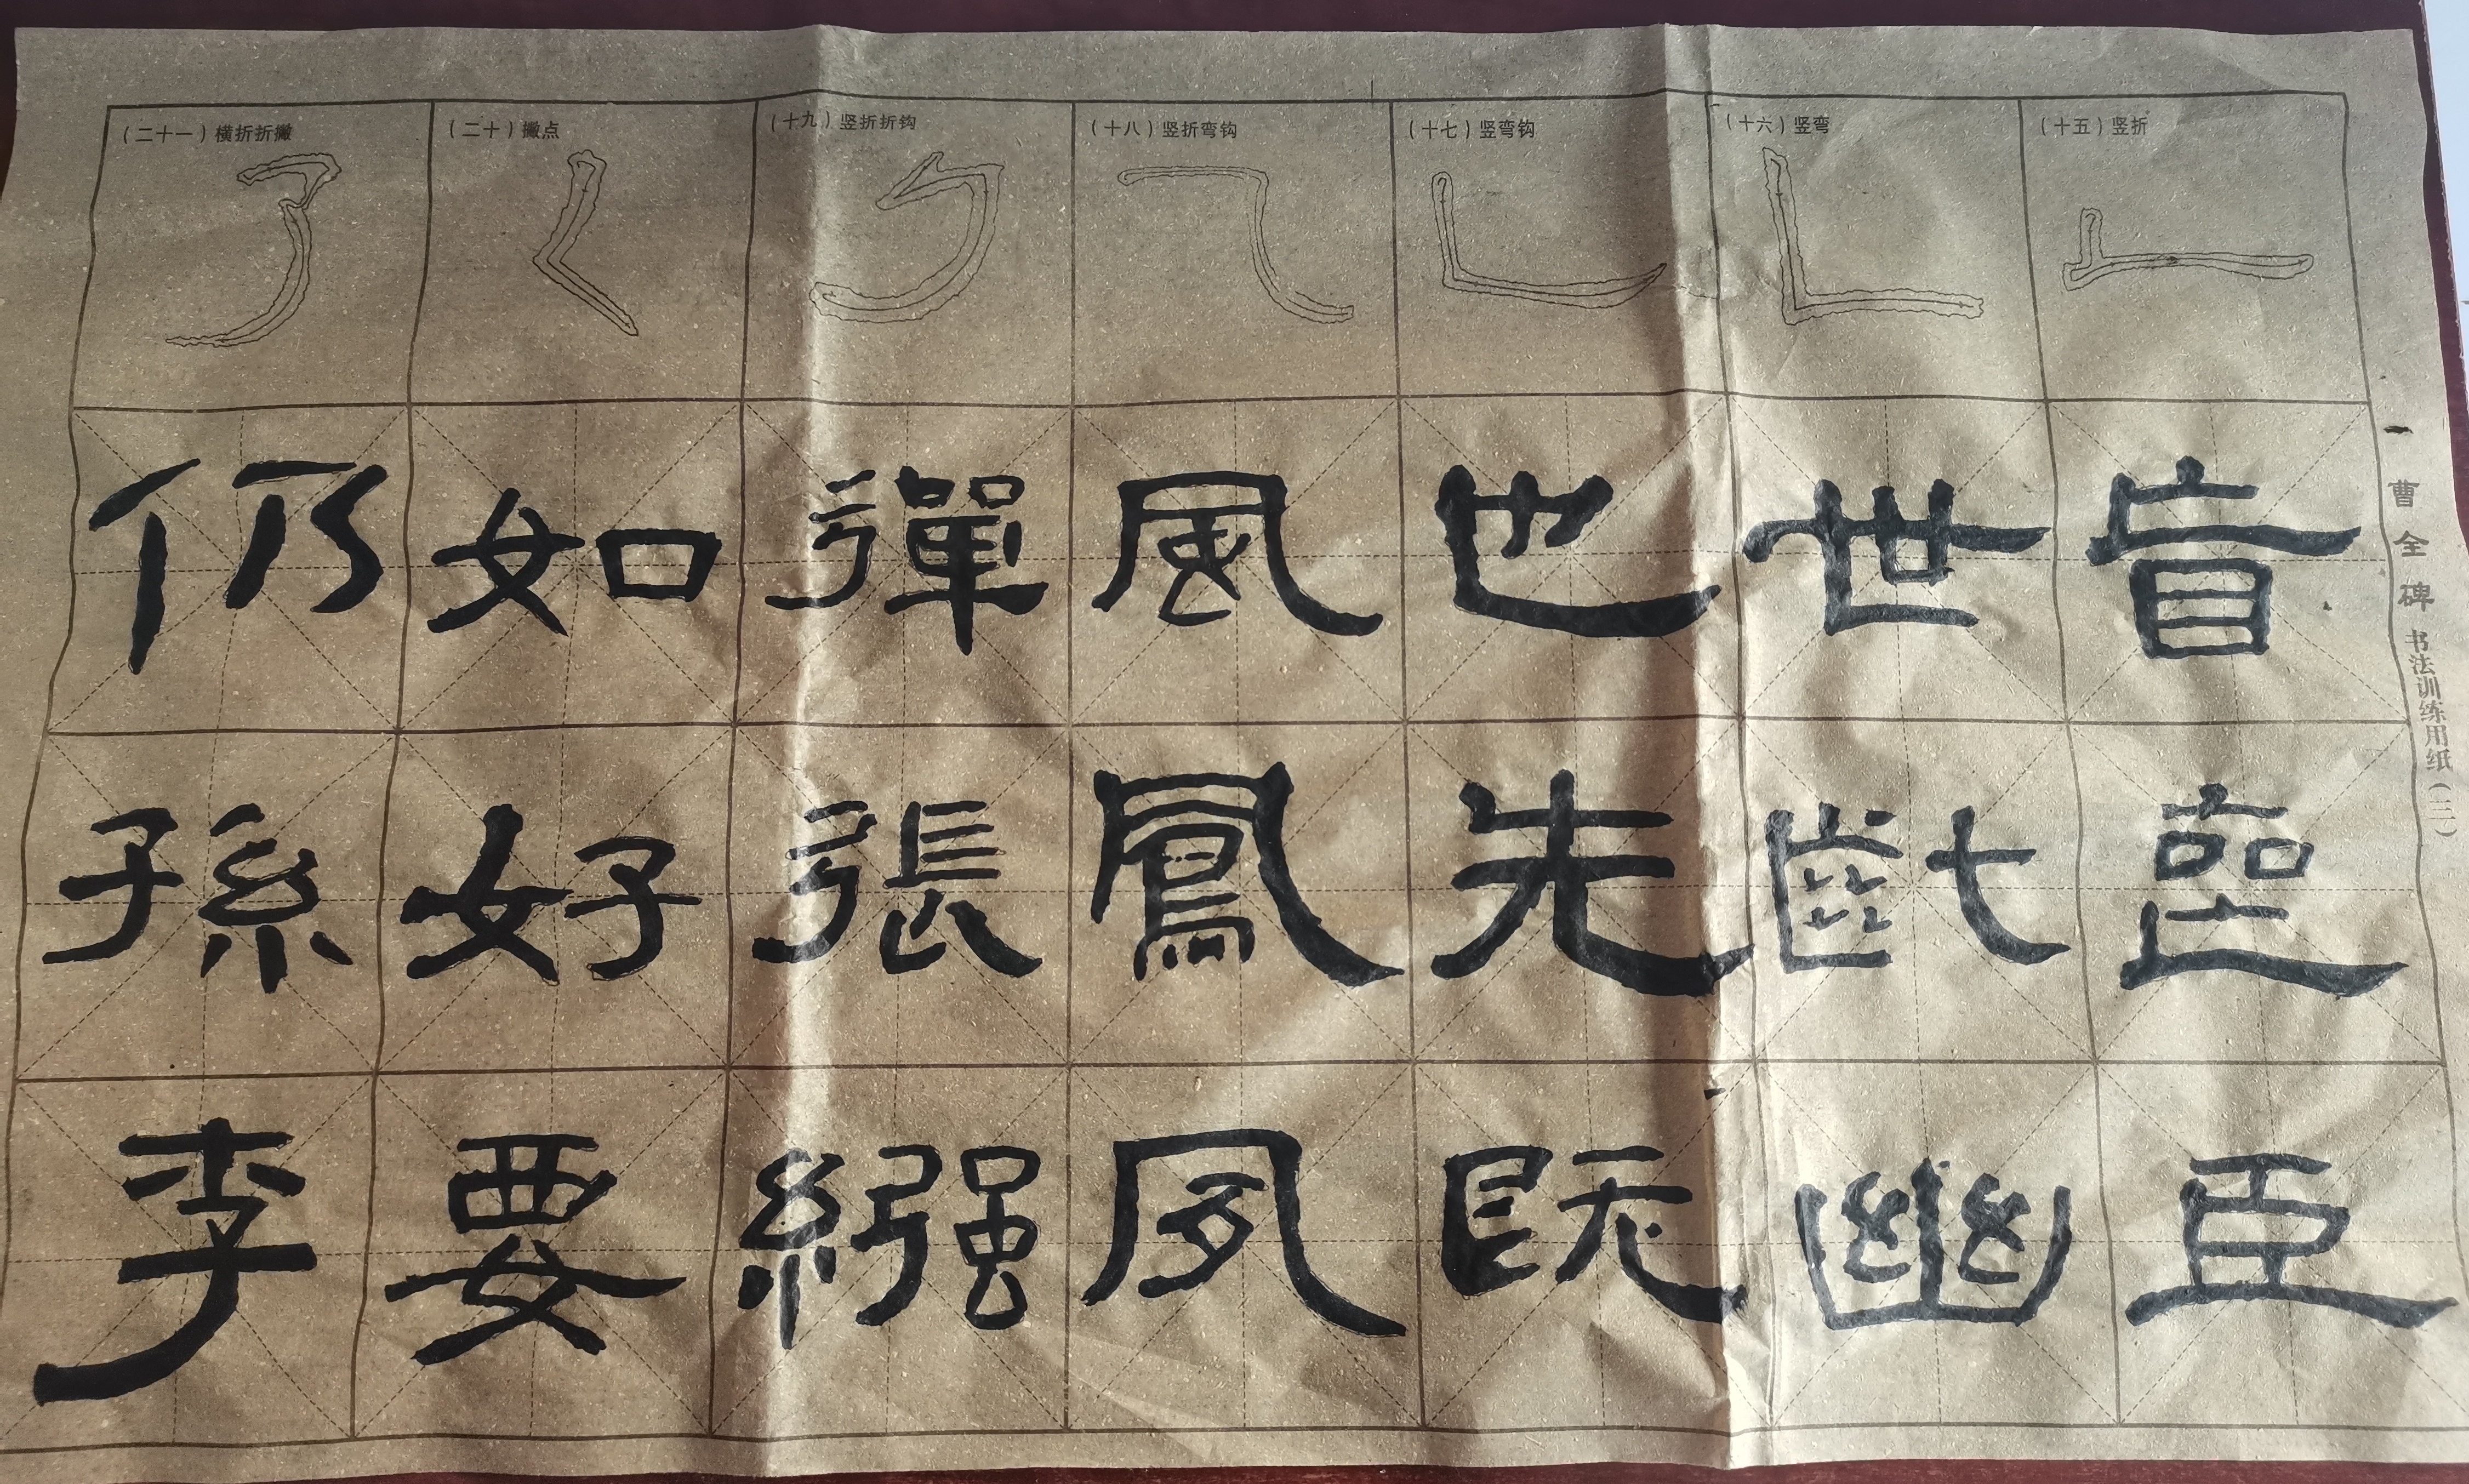 曹全碑 书法训练用纸（三）
（十五）竖折
盲
臣
（十六）竖弯
世
齔
幽
（十七）竖弯钩
也
先
既
（十八）竖折弯钩
風
鳳
夙
（十九）竖折折钩
彈
張
繈
（二十）撇点
如
好
要
（二十一）横折折撇
仍
孫
李